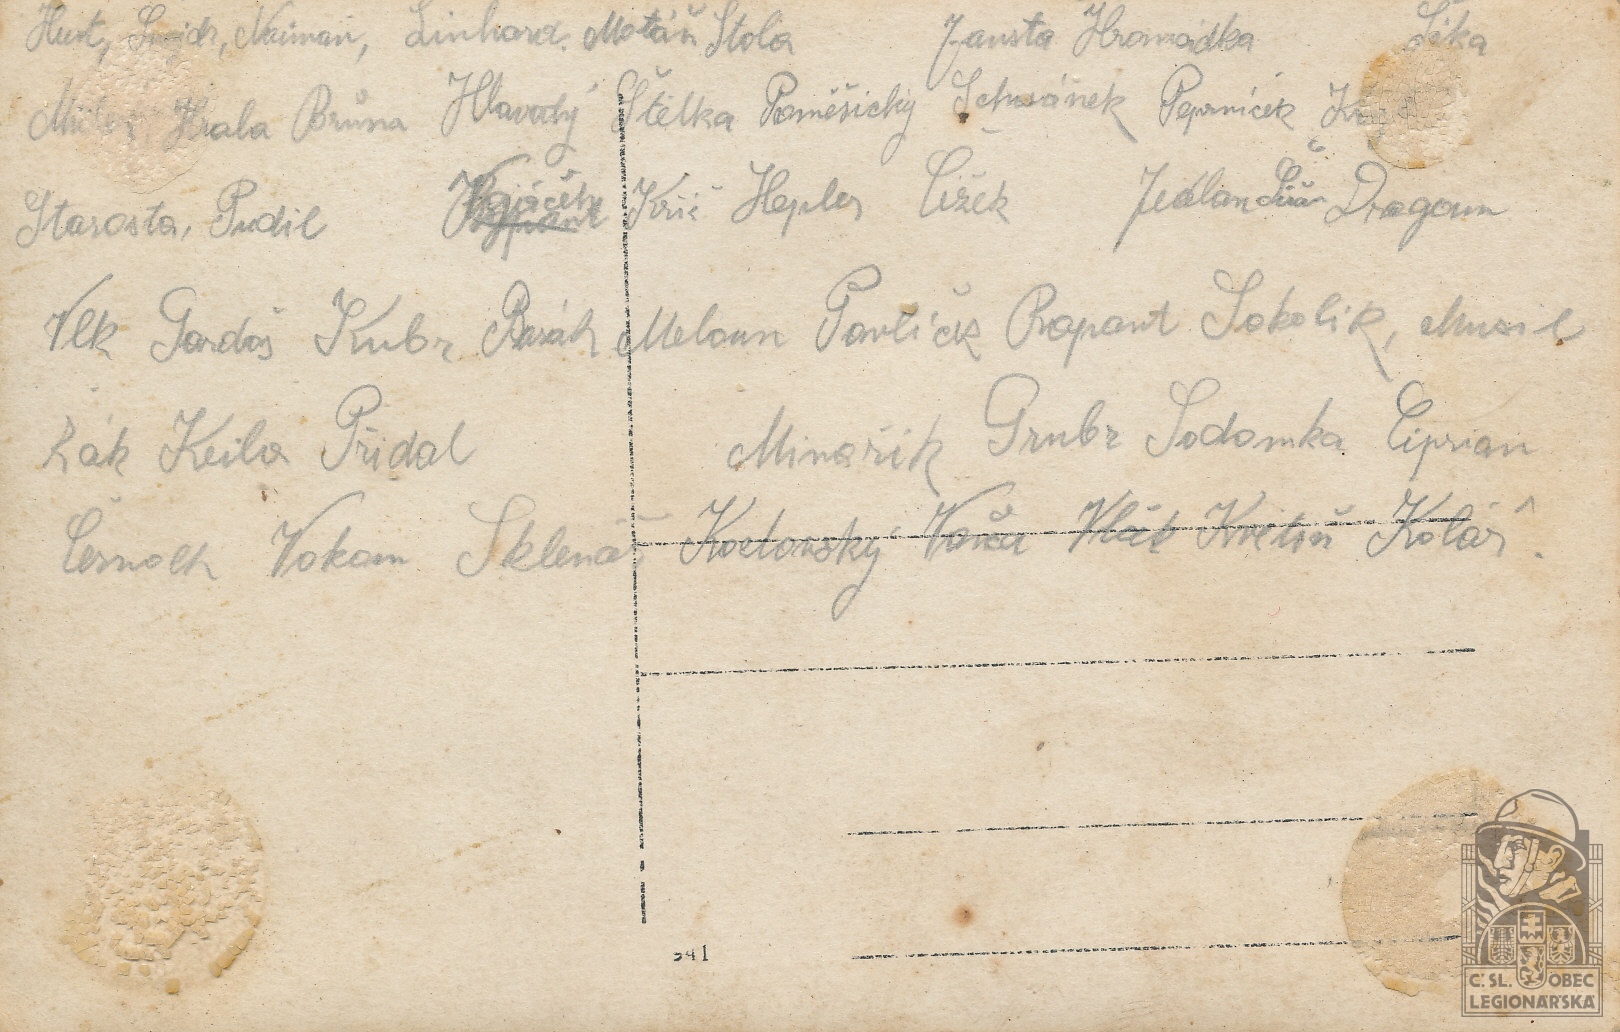 Hust, Šnajdr, Naiman, Linhard. Matáš Štola Fausta Hromádka Šika
Hrala Brůna Hlavatý Štelka Poměšický Schwánek Peprníček
Starosta, Pudil Kojáček Kříč Hepler Čížek Dragoun
Vlk Gardoš Kubr Meloun Pavlíček Rapant Sokolík, Musil
Žák Keila Přidal Minařík Grubr Sodomka Ciprian
Černoch Vokoun Sklenář Kozlovský Květoň Kolář.
541
Č. SL. OBEC
LEGIONÁŘSKÁ